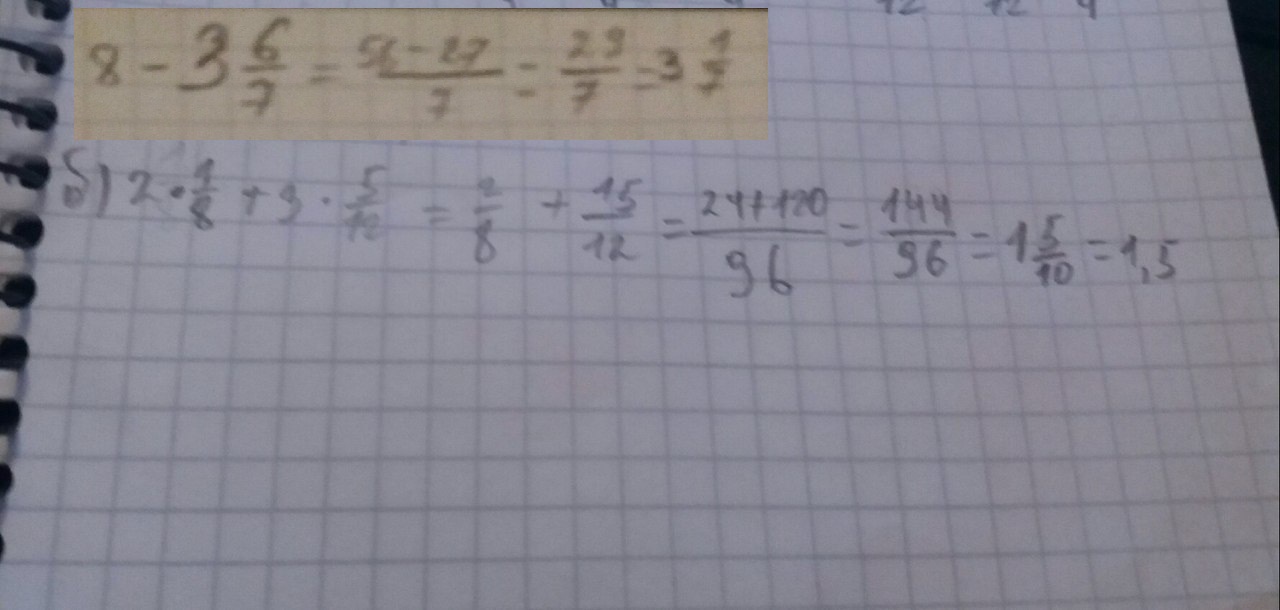 12 12 4
8 - 3 6/7 = 56 - 27/7 = 29/7 = 3 1/7
б) 2 · 1/8 + 3 · 5/12 = 2/8 + 15/12 = 24+120/96 = 144/96 = 1 5/10 = 1,5